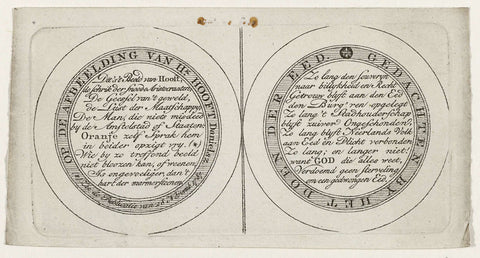 OP DE AFBEELDING VAN Hk. HOOFT Danielsz.
Dit 's 't Beeld van Hooft,
de schrik der snoode Aristocraaten,
De Geessel van 't geweld,
de Lust der Maatschappij,
De Man, die niets misdeed
by de Amstelstad of Staaten;
Oranje zelf sprak hem
in helder opzigt vry. (*)
Wie by zo treffend beeld
niet bloozen kan, of weenen,
Is ongevoeliger dan 't
hart der marmersteenen.
GEDACHTEN BY HET DOEN DER EED.
Zo lang den Souveryn
naar billykheid en Recht
Getrouw blyft aan den Eed
den Burg'ren opgelegt
Zo lang 't Stadhouderschap
blyft zuiver Ongeschonden;
Zo lang blyft Neerlands Volk
aan Eed en Plicht verbonden
Zo lang; en langer niet!
want GOD die alles weet,
Verdoemd geen sterveling
om een gedwongen Eed.